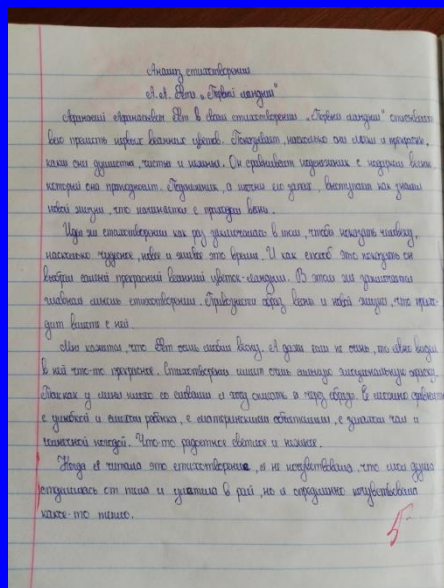 Анализ стихотворения
А. А. Фета „Первый ландыш"
Афанасий Афанасьевич Фет в своем стихотворении „Первый ландыш" описывает
всю прелесть первых весенних цветов. Показывает, насколько они и прекрасны,
какие они душисты, чисты и нежны. Он сравнивает с подарком весны,
который она преподносит. а точнее его запах, выступает как
новой жизни, что начинается с приходом весны.
Идея же стихотворения как раз заключалась в том, чтобы показать человеку,
насколько чудесное, новое и живое это время. И как способ это показать он
выбрал самый прекрасный весенний цветок-ландыш. В этом же заключается
главная мысль стихотворения. образ весны и новой жизни, что прихо-
дит вместе с ней.
Мне кажется, что Фет очень любил весну. А даже если не очень, то явно видел
в ней что-то прекрасное. Стихотворение имеет очень сильную эмоциональную окраску.
Так как у меня плохо со словами я могу описать её через образы. Её можно сравнить
с улыбкой и смехом ребёнка, с материнскими объятиями, с запахом чая и
погодой. Что-то радостное светлое и нежное.
Когда я читала это стихотворение, я не почувствовала, что моя душа
отделилась от тела и улетела в рай, но я определённо почувствовала
какое-то тепло.